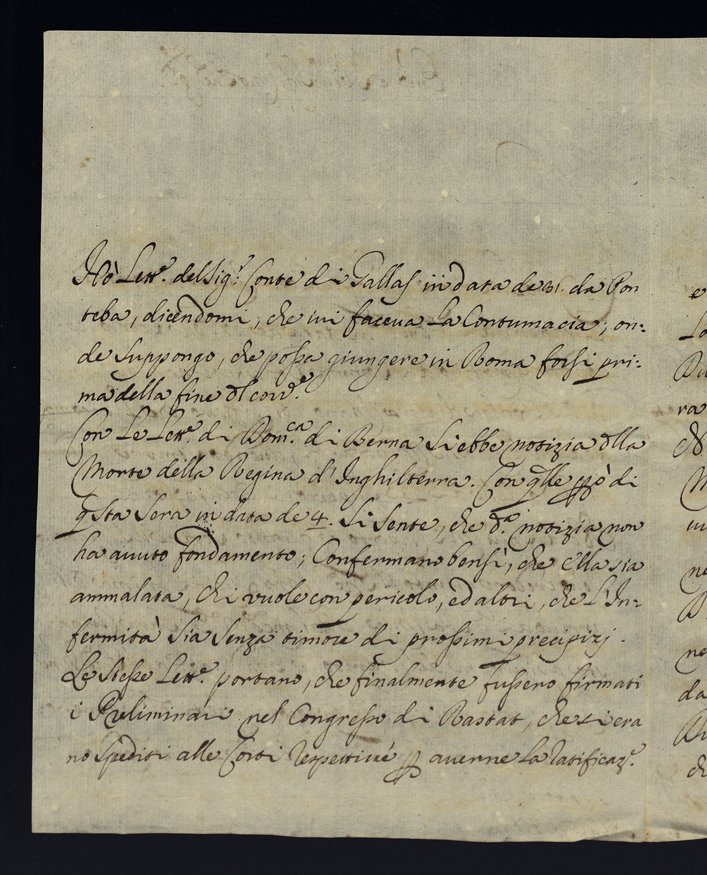 Hò Lett.e del Sig.r Conte di Gallas in data de 31. da Pon
teba, dicendomi, che ivi faceva La Contumacia; on:
de Suppongo, che possa giungere in Roma forsi pri:
ma della fine dl corr.e
Con Le Lett.e di Dom.ca di Berna Si ebbe notizia dlla
Morte della Regina d'Inghilterra. Con qlle però di
qsta Sera in data de 4. Si Sente, che d.a notizia non
ha avuto fondamento; Confermano bensì, che ella sia
ammalata, chi vuole con pericolo, ed altri, che L'In=
fermità Sia Senza timore di prossimi precipizj.
Le Stesse Lett.e portano, che finalmente fussero firmati
i Preliminari nel Congresso di Rastat, che si era
no Spediti alle Corti respettivè per averne La ratificaz.e